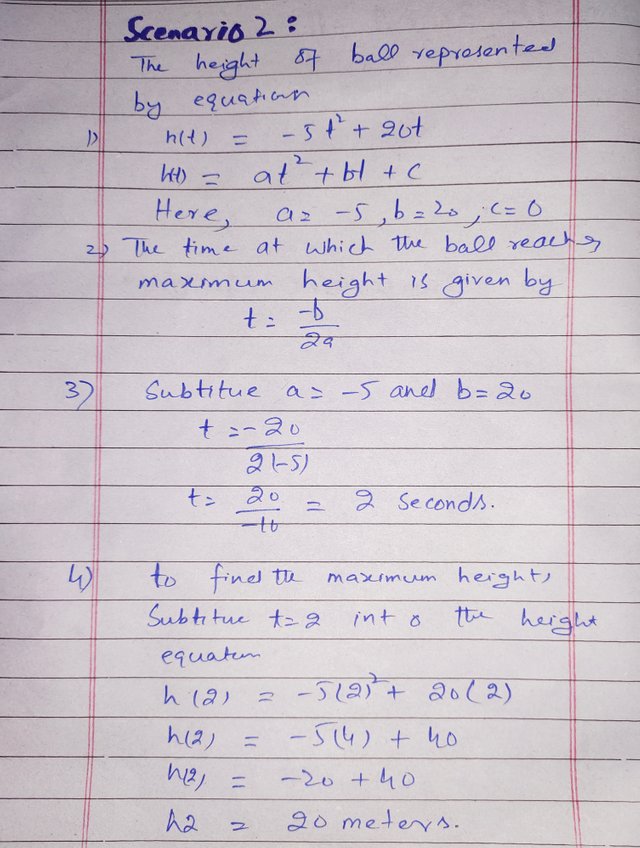 Scenario 2 :
The height of ball represented
by equation
1) h(t) = -5t² + 20t
h(t) = at² + bt + c
Here, a = -5, b = 20, c = 0
2) The time at which the ball reaches
maximum height is given by
t = -b
2a
3) Subtitue a = -5 and b = 20
t = -20
2(-5)
t = 20 = 2 seconds.
-10
4) to find the maximum height,
Subtitue t = 2 into the height
equation
h(2) = -5(2)² + 20(2)
h(2) = -5(4) + 40
h(2) = -20 + 40
h2 = 20 meters.